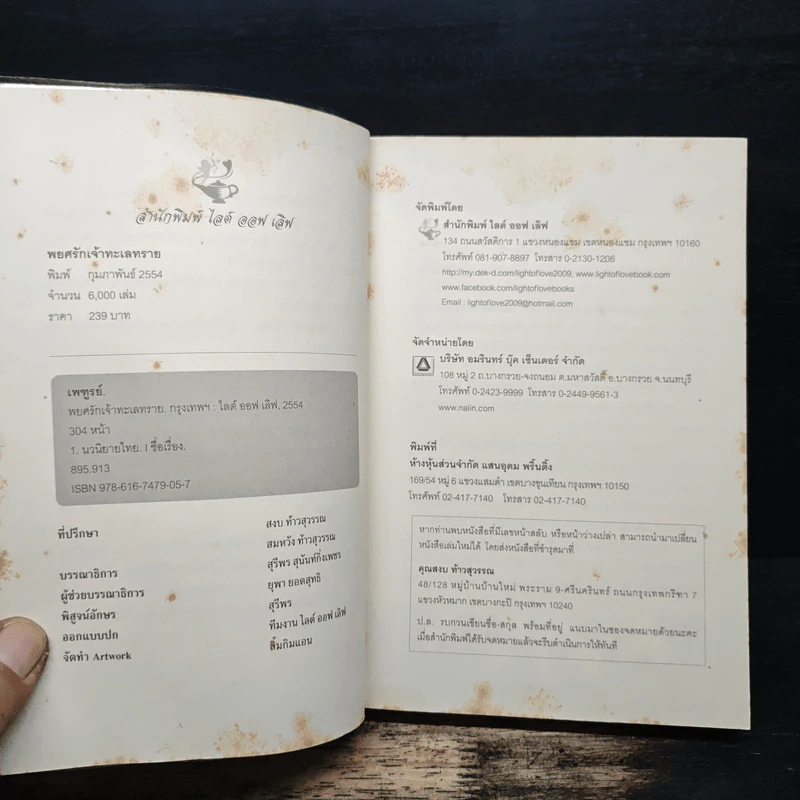 สำนักพิมพ์ ไลต์ ออฟ เลิฟ
พยศรักเจ้าทะเลทราย
พิมพ์ กุมภาพันธ์ 2554
จำนวน 6,000 เล่ม
ราคา 239 บาท
เพฑูรย์.
พยศรักเจ้าทะเลทราย. กรุงเทพฯ : ไลต์ ออฟ เลิฟ, 2554
304 หน้า
1. นวนิยายไทย. I ชื่อเรื่อง.
895.913
ISBN 978-616-7479-05-7
ที่ปรึกษา สงบ ท้าวสุวรรณ
สมหวัง ท้าวสุวรรณ
บรรณาธิการ สุรีพร สุนันท์กิ่งเพชร
ผู้ช่วยบรรณาธิการ ยุพา ยอดสุทธิ
พิสูจน์อักษร สุรีพร
ออกแบบปก ทีมงาน ไลต์ ออฟ เลิฟ
จัดทำ Artwork ลิ้มกิมแอน
จัดพิมพ์โดย
สำนักพิมพ์ ไลต์ ออฟ เลิฟ
134 ถนนสวัสดิการ 1 แขวงหนองแขม เขตหนองแขม กรุงเทพฯ 10160
โทรศัพท์ 081-907-8897 โทรสาร 0-2130-1206
http://my.dek-d.com/lightoflove2009, www.lightoflovebook.com
www.facebook.com/lightoflovebooks
Email : lightoflove2009@hotmail.com
จัดจำหน่ายโดย
บริษัท อมรินทร์ บุ๊ค เซ็นเตอร์ จำกัด
108 หมู่ 2 ถ.บางกรวย-จงถนอม ต.มหาสวัสดิ์ อ.บางกรวย จ.นนทบุรี
โทรศัพท์ 0-2423-9999 โทรสาร 0-2449-9561-3
www.naiin.com
พิมพ์ที่
ห้างหุ้นส่วนจำกัด แสนอุดม พริ้นติ้ง
169/54 หมู่ 6 แขวงแสมดำ เขตบางขุนเทียน กรุงเทพฯ 10150
โทรศัพท์ 02-417-7140 โทรสาร 02-417-7140
หากท่านพบหนังสือที่มีเลขหน้าสลับ หรือหน้าว่างเปล่า สามารถนำมาเปลี่ยน
หนังสือเล่มใหม่ได้ โดยส่งหนังสือที่ชำรุดมาที่
คุณสงบ ท้าวสุวรรณ
48/128 หมู่บ้านบ้านใหม่ พระราม 9-ศรีนครินทร์ ถนนกรุงเทพกรีฑา 7
แขวงหัวหมาก เขตบางกะปิ กรุงเทพฯ 10240
ป.ล. รบกวนเขียนชื่อ-สกุล พร้อมที่อยู่ แนบมาในซองจดหมายด้วยนะคะ
เมื่อสำนักพิมพ์ได้รับจดหมายแล้วจะรีบดำเนินการให้ทันที